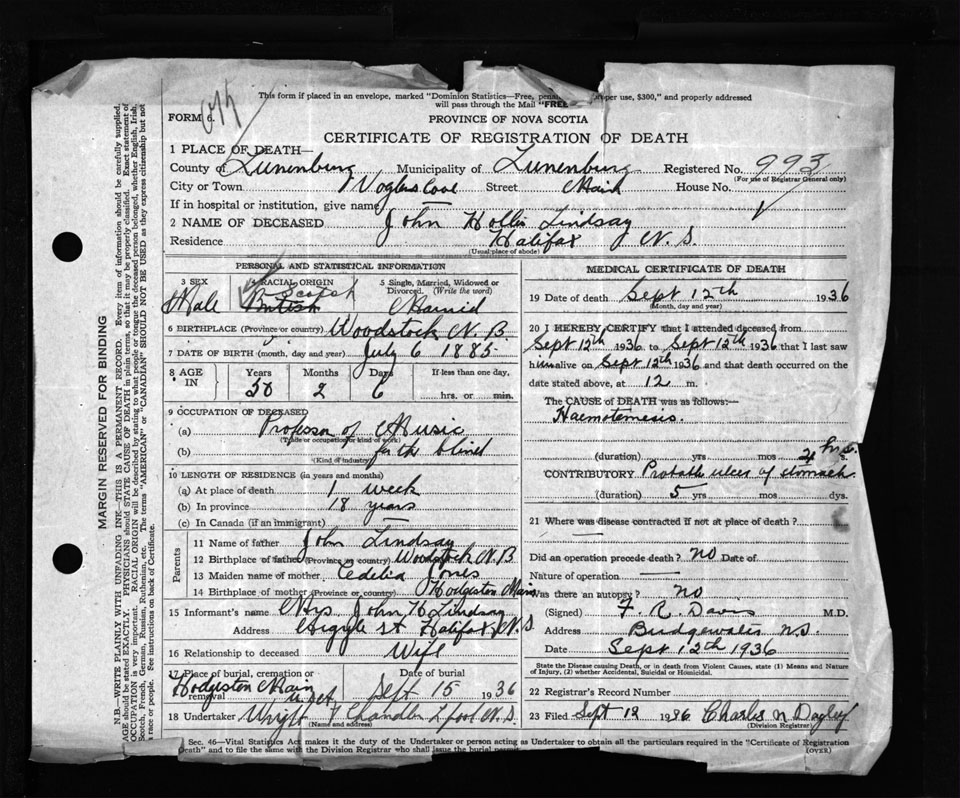 This form if placed in an envelope, marked "Dominion Statistics—Free, proper use, $300," and properly addressed
will pass through the Mail "FREE
FORM 6.
PROVINCE OF NOVA SCOTIA
CERTIFICATE OF REGISTRATION OF DEATH
1 PLACE OF DEATH—
County of Lunenburg Municipality of Lunenburg Registered No. 993
(For use of Registrar General only)
City or Town Voglers Cove Street Main House No.
If in hospital or institution, give name
2 NAME OF DECEASED John Hollis Lindsay
Residence Halifax N.S.
(Usual place of abode)
PERSONAL AND STATISTICAL INFORMATION
3 SEX Male
4 RACIAL ORIGIN British Scotch
5 Single, Married, Widowed or Divorced. (Write the word) Married
6 BIRTHPLACE (Province or country) Woodstock N.B.
7 DATE OF BIRTH (month, day and year) July 6 1885
8 AGE IN Years Months Days If less than one day,
50 2 6 hrs. or min.
9 OCCUPATION OF DECEASED
(a) Professor of Music
(Trade or occupation or kind of work)
(b) for the blind
(Kind of industry)
10 LENGTH OF RESIDENCE (in years and months)
(a) At place of death 1 week
(b) In province 18 years
(c) In Canada (if an immigrant)
Parents
11 Name of father John Lindsay
12 Birthplace of father (Province or country) Woodstock N.B
13 Maiden name of mother Jones
14 Birthplace of mother (Province or country) Hodgdon Maine
15 Informant's name Mrs John H Lindsay
Address Argyle St Halifax N.S
16 Relationship to deceased Wife
17 Place of burial, cremation or removal Date of burial
Maine Sept 15 1936
18 Undertaker Chandler L'pool N.S.
(Name and address)
MEDICAL CERTIFICATE OF DEATH
19 Date of death Sept 12th 1936
(Month, day and year)
20 I HEREBY CERTIFY that I attended deceased from
Sept 12th 1936 to Sept 12th 1936 that I last saw
him alive on Sept 12th 1936 and that death occurred on the
date stated above, at 12 m.
The CAUSE of DEATH was as follows:—
Haemotemesis.
(duration) yrs mos 4 hrs.
CONTRIBUTORY Probable ulcer of stomach
(duration) 5 yrs mos dys.
21 Where was disease contracted if not at place of death?
Did an operation precede death? no Date of
Nature of operation
Was there an autopsy? no
(Signed) F. R. Davis M.D.
Address Bridgewater N.S.
Date Sept 12th 1936
State the Disease causing Death, or in death from Violent Causes, state (1) Means and Nature
of Injury, (2) whether Accidental, Suicidal or Homicidal.
22 Registrar's Record Number
23 Filed Sept 12 1936 Charles N
(Division Registrar)
Sec. 46—Vital Statistics Act makes it the duty of the Undertaker or person acting as Undertaker to obtain all the particulars required in the "Certificate of Registration
Death" and to file the same with the Division Registrar who shall issue the burial permit
(OVER)
MARGIN RESERVED FOR BINDING
N.B.—WRITE PLAINLY WITH UNFADING INK—THIS IS A PERMANENT RECORD. Every item of information should be carefully supplied.
AGE should be stated EXACTLY. PHYSICIANS should STATE CAUSE OF DEATH in plain terms, so that it may be properly classified. Exact statement of
OCCUPATION is very important. RACIAL ORIGIN will be described by stating to what people or tongue the deceased person belonged, whether English, Irish,
Scotch, French, German, Russian, Ruthenian, etc. The terms "AMERICAN" or "CANADIAN" SHOULD NOT BE USED as they express citizenship but not
a race or people. See instructions on back of Certificate.